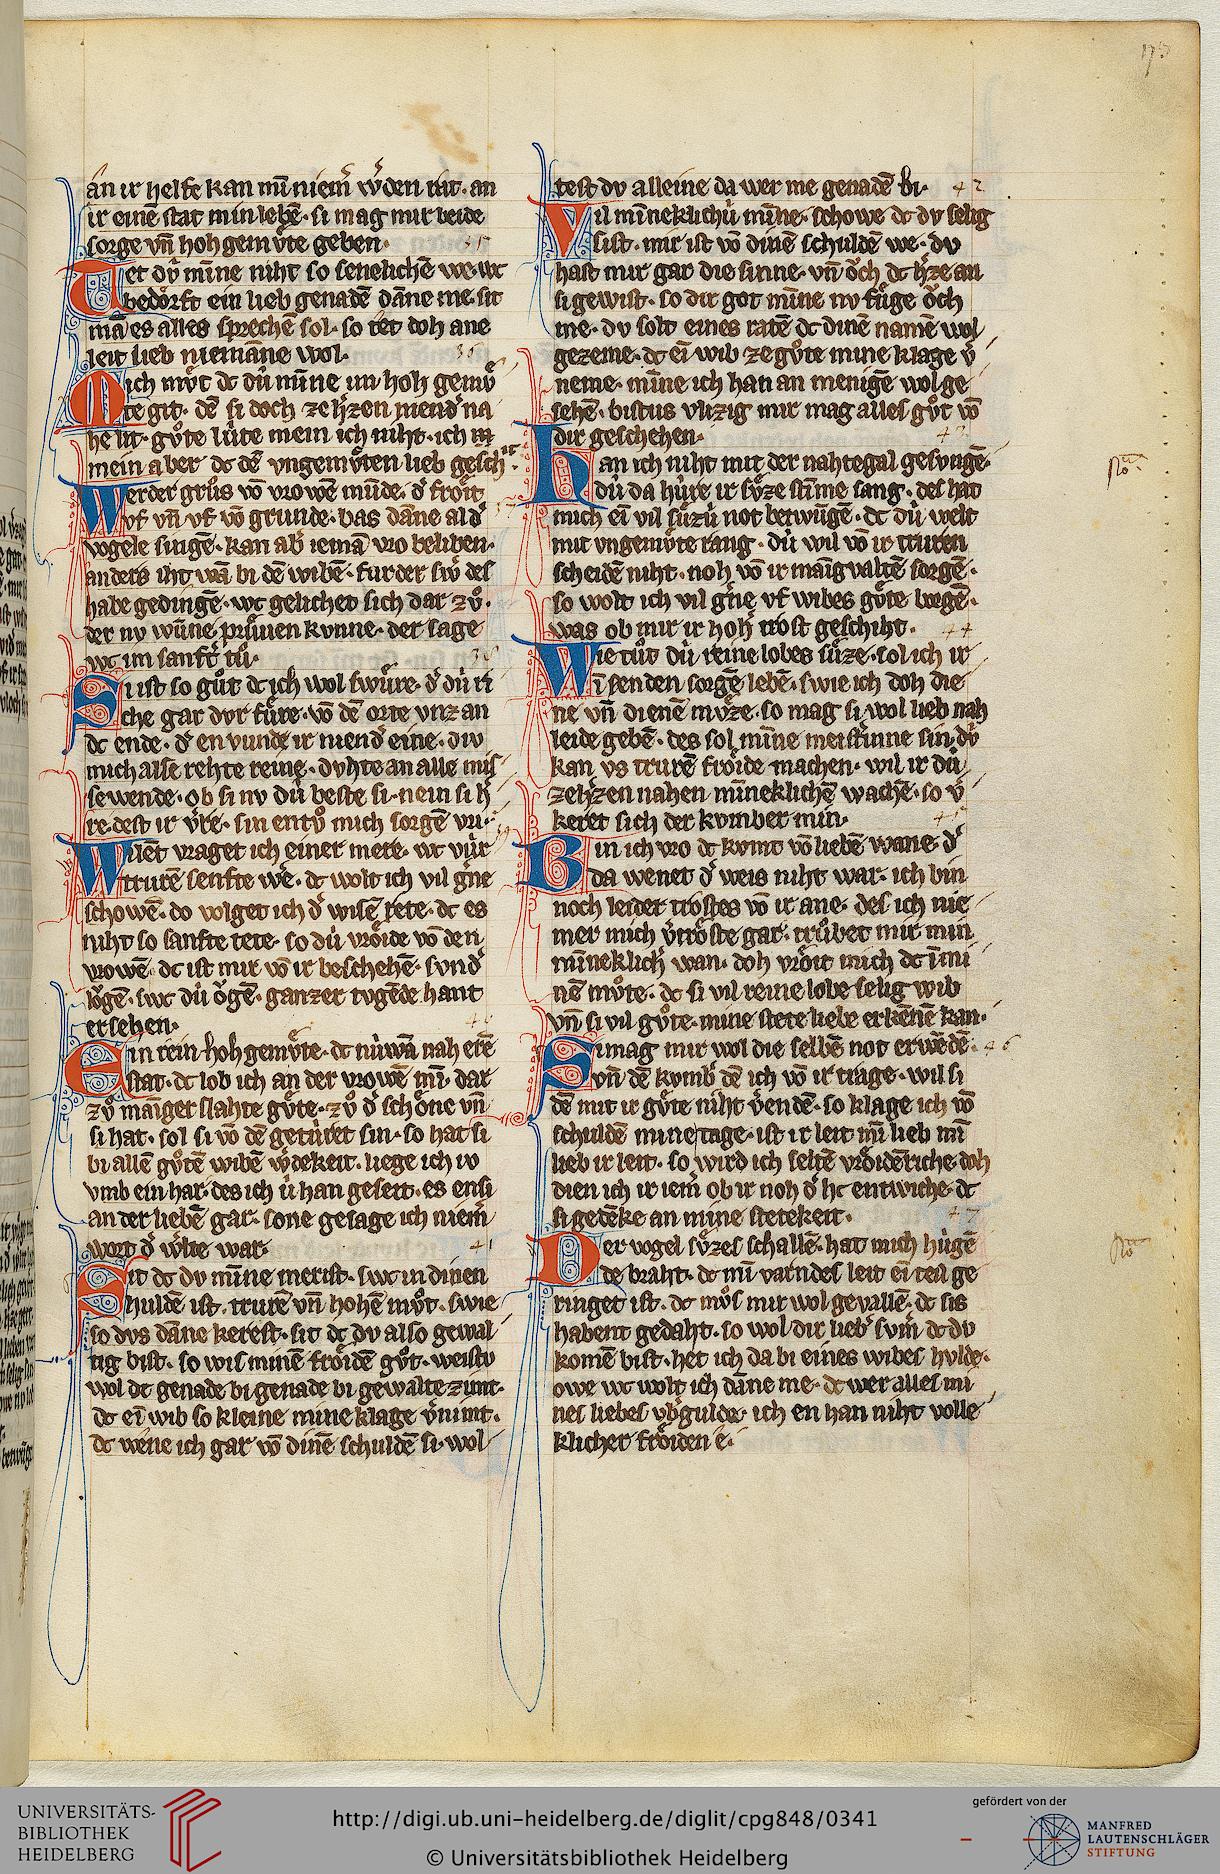 173
an ir helfe kan mī niem̄ w̄den rat· an
ir einē stat min lebē· si mag mir beide
sorge vn̄ hohgemv̊te geben·
Tet dv̍ mīne niht so senelichē we· wc
bedo̍rft ein lieb genadē dāne me· sit
mā es alles sprechē sol· so tet doh ane
leit lieb niemāne wol·
Mich mv̊t dc dv̍ mīne im hoh gemv̊
te git· dē si doch ze h̄zen niend̾ na
he lit· gv̊te lv̍te mein ich niht· ich
mein aber dc dē vngemv̊ten lieb gesch
Werder grv̊s vō vrowē mv̄de· d̾ frȯit
vf vn̄ vf vō grunde· bas dāne al d̾
vogele singē· kan ab̾ iemā vro beliben·
anders iht wā bi dē wibē· fur der sw̾ des
habe gedingē· wc gelichet sich dar zů·
der nv wūne prv̊uen kvnne· der sage
wc im sanft̾ tů·
Si ist so gůt dc ich wol swůre· d̾ dv̍ ri
che gar dvr fůre· vō dē orte vnz an
dc ende· d̾ en vunde ir niend̾ eine· div
mich alse rehte reine· dvhte an alle mis
sewende· ob si nv dv̍ beste si· nein si h̾
re dest ir v̾re· sin entů mich sorgē vri·
Wilēt vraget ich einer mere· wc vu̍r
trurē senfte we· dc wolt ich vil g̾ne
schowē· do volget ich d̾ wisē rete· dc es
niht so sanfte tete· so dv̍ vrȯide vō den
vrowē· dc ist mir vō ir beschehē· svnd̾
lo̍gē· swc dv̍ o̍gē· ganzer tvgēde hant
ersehen·
Ein rein hohgemv̊te· dc nv̍wā nah erē
stat· dc lob ich an der vrowē mī· dar
zů māiger slahte gůte· zů d̾ scho̍ne vn̄
si hat· sol si vō dē getu̍ret sin· so hat si
bi allē gůtē wibē w̾dekeit· liege ich iv
vmb ein har· des ich u̍ han geseit· es ensi
an der liebē gar· sone gesage ich niem̄
wort d̾ w̾lte war·
Sit dc dv mīne merist· swc in dinen
hulde ist· trurē vn̄ hohē mv̊t· swie
so dvs dāne kerest· sit dc dv also gewal
tig bist· so wis minē frȯidē gůt· weistv
wol dc genade bi genade bi gewalte zimt·
dc eī wib so kleine mine klage v̾nimt·
dc wene ich gar vō dinē schuldē si· wol
test dv alleine da wer me genadē bi· 42
Vil mīneklichu̍ mīne· schowe dc dv selig
sist· mir ist vō dinē schuldē we· dv
hast mir gar die sinne· vn̄ o̍ch dc h̾ze an
si gewist· so dir got mīne nv fůge o̍ch
me· dv solt eines ratē dc dinē namē wol
gezeme· dc eī wib ze gůte mine klage v̾
neme· mīne ich han an menigē wol ge
sehē· bistus vlizig mir mag alles gůt vō
dir geschehen·
Kan ich niht mit der nahtegal gesvngē·
dv̍ da hu̍re ir sůze stīme sang· des hat
mich eī vil sůzu̍ not betwūgē· dc dv̍ welt
mit vngemv̊te rang· dv̍ wil vō ir truren
scheidē niht· noh vō ir māigvaltē sorgē·
so wolt ich vil g̾ne vf wibes gůte borgē·
was ob mir ir hoh̾ trost geschiht· 44
Wie tůt dv̍ reine lobes sůze· sol ich ir
ī senden sorgē lebē· swie ich doh die
ne vn̄ dienē mv̊ze· so mag si wol lieb nah
leide gebē· des sol mīne meistīnne sin· dv̍
kan vs trurē frȯide machen· wil ir dv̍
ze h̾zen nahen mīneklichē wachē· so v̾
keret sich der kvmber min·
Bin ich vro dc kvmt vō liebē wane· d̾
da wenet d̾ weis niht war· ich bin
noch leider trostes vō ir ane· des ich nie
mer mich v̾trȯste gar· trůbet mir min
mīneklich̾ wan· doh vrȯit mich dc ī mi
nē mv̊te· dc si vil reine lobe selig wib
vn̄ si vil gůte· mine stete liebe erkēnē kan·
Si mag mir wol die selbē not erwēdē· 46
vn̄ dē kvmb̾ dē ich vō ir trage· wil si
dē mit ir gůte niht v̾endē· so klage ich vō
schuldē mine tage· ist ir leit mī lieb mī
lieb ir leit· so wird ich seltē vrȯidēriche· doh
dien ich ir iem̄ ob ir noh d̾ hc entwiche· dc
si gedēke an mine stetekeit· 47
Der vogel sůzes schallē· hat mich hu̍gē
de braht· dc mī varndes leit eī teil ge
ringet ist· dc mv̊s mir wol gevallē· dc sis
habent gedaht· so wol dir lieb̾ svm̄ dc dv
komē bist· het ich da bi eines wibes hvlde·
owe wc wolt ich dāne me· dc wer alles mi
nes liebes vb̾gulde· ich en han niht volle
klicher frȯiden e·
UNIVERSITÄTS-
BIBLIOTHEK
HEIDELBERG
http://digi.ub.uni-heidelberg.de/diglit/cpg848/0341
© Universitätsbibliothek Heidelberg
gefördert von der
MANFRED
LAUTENSCHLÄGER
STIFTUNG